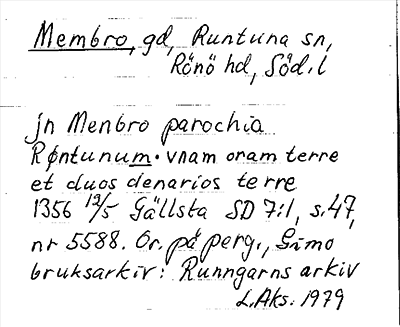 Membro, gd, Runtuna sn,
Rönö hd, Söd.l
jn Menbro parochia
Røntunum. vnam oram terre
et duos denarios terre
1356 12/5 Gällsta SD 7:1, s. 47,
nr 5588. Or. på perg., Gimo
bruksarkiv: Runngarns arkiv
L.Aks. 1979